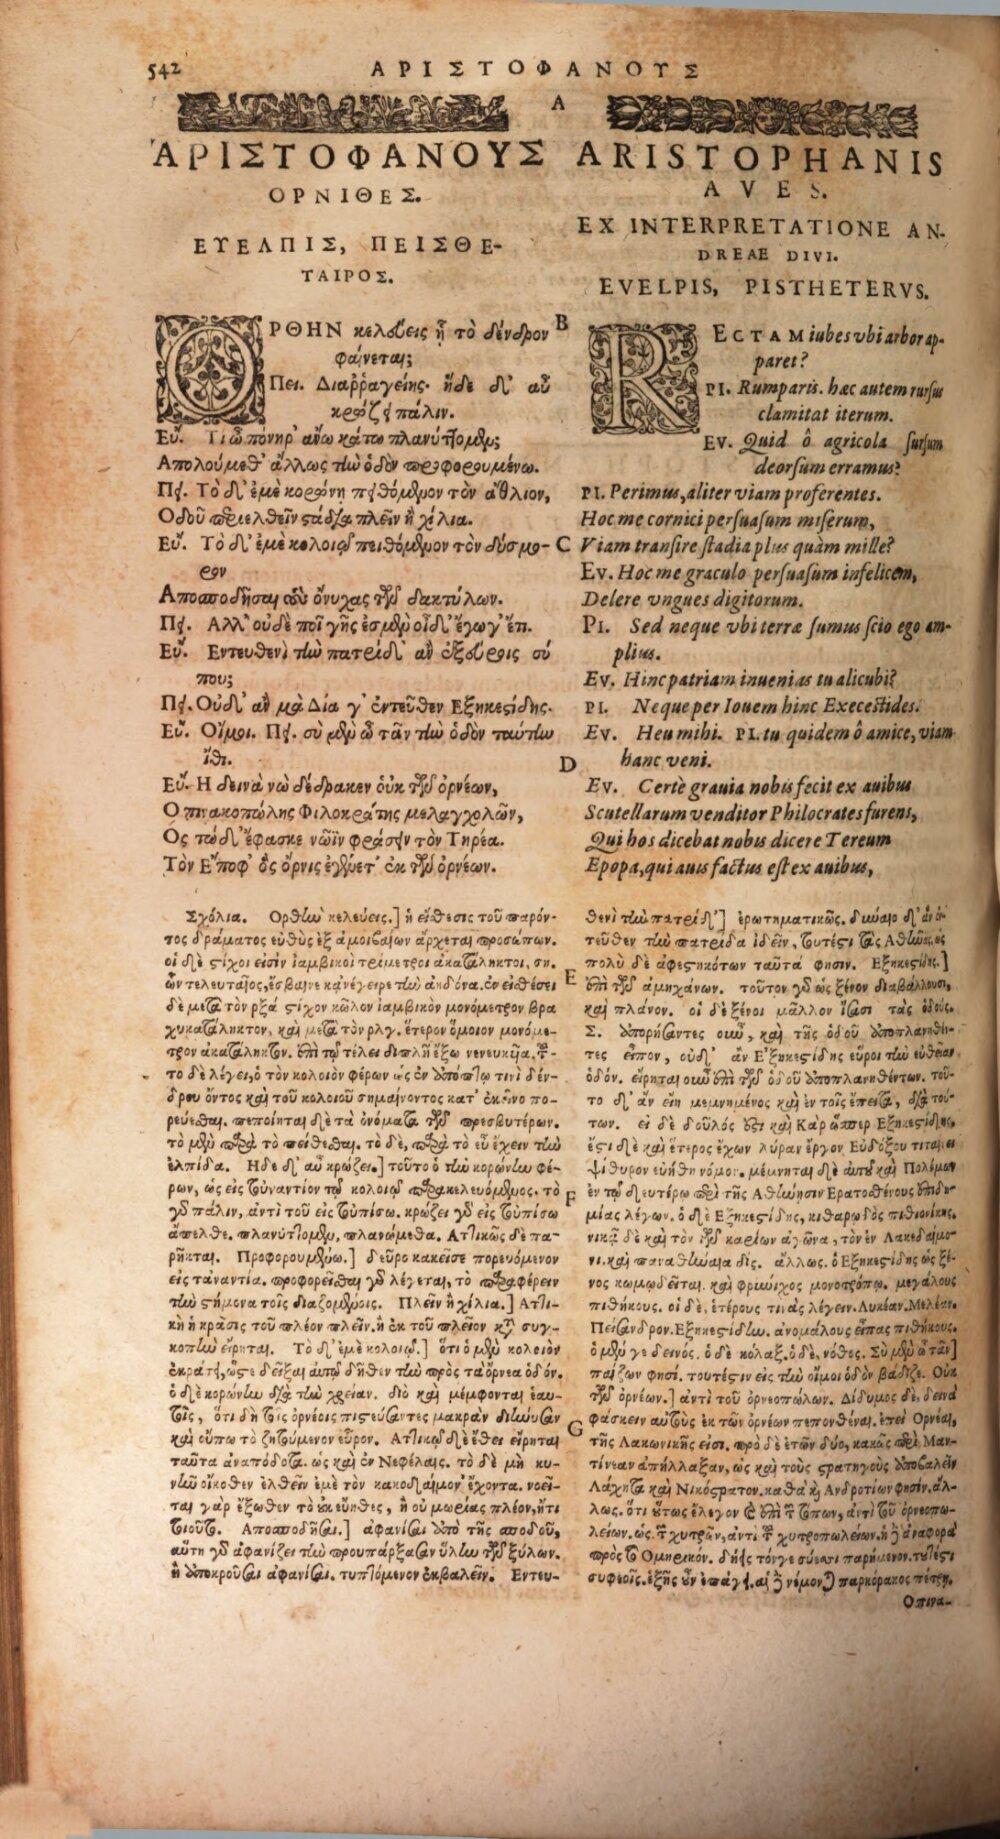 542
ΑΡΙΣΤΟΦΑΝΟΥΣ
Α
ἈΡΙΣΤΟΦΑΝΟΥΣ
ΟΡΝΙΘΕΣ.
ΕΥΕΛΠΙΣ, ΠΕΙΣΘΕ-
ΤΑΙΡΟΣ.
ΟΡΘΗΝ κελεύεις ᾗ τὸ δένδρον
φαίνεται;
Πει. Διαῤῥαγείης· ἥδε δ' αὖ
κρώζει πάλιν.
Εὐ. Τί ὦ πόνηρ' ἄνω κάτω πλανύττομεν;
Απολούμεθ' ἄλλως τὴν ὁδὸν προφορουμένω.
Πει. Τὸ δ' ἐμὲ κορώνῃ πειθόμενον τὸν ἄθλιον,
Οδοῦ περιελθεῖν στάδια πλεῖν ἢ χίλια.
Εὐ. Τὸ δ' ἐμὲ κολοιῷ πειθόμενον τὸν δύσμο-
ρον
Αποσποδῆσαι τοὺς ὄνυχας τῶν δακτύλων.
Πει. Αλλ' οὐδὲ ποῖ γῆς ἐσμὲν οἶδ' ἔγωγ' ἔτι.
Εὐ. Εντευθενὶ τὴν πατρίδ' ἂν ἐξεύροις σύ
που;
Πει. Οὐδ' ἂν μὰ Δία γ' ἐντεῦθεν Εξηκεστίδης.
Εὐ. Οἴμοι. Πει. σὺ μὲν ὦ τᾶν τὴν ὁδὸν ταύτην
ἴθι.
Εὐ. Η δεινὰ νὼ δέδρακεν οὑκ τῶν ὀρνέων,
Ο πινακοπώλης Φιλοκράτης μελαγχολῶν,
Ος τώδ' ἔφασκε νῶϊν φράσειν τὸν Τηρέα.
Τὸν Εποφ' ὃς ὄρνις ἐγένετ' ἐκ τῶν ὀρνέων.
ARISTOPHANIS
AVES.
EX INTERPRETATIONE AN-
DREAE DIVI.
EVELPIS, PISTHETERVS.
B
RECTAM iubes vbi arbor ap-
paret?
PI. Rumparis. hac autem rursus
clamitat iterum.
EV. Quid ô agricola sursum
deorsum erramus?
PI. Perimus, aliter viam proferentes.
Hoc me cornici persuasum miserum,
C Viam transire stadia plus quàm mille?
EV. Hoc me graculo persuasum infelicem,
Delere vngues digitorum.
PI. Sed neque vbi terræ sumus scio ego am-
plius.
EV. Hinc patriam inuenias tu alicubi?
PI. Neque per Iouem hinc Execestides.
EV. Heu mihi. PI. tu quidem ô amice, viam
D hanc veni.
EV. Certè grauia nobis fecit ex auibus
Scutellarum venditor Philocrates furens,
Qui hos dicebat nobis dicere Tereum
Epopa, qui auis factus est ex auibus,
Σχόλια. Ορθὴν κελεύεις.] ἡ εἴσθεσις τοῦ παρόν-
τος δράματος εὐθὺς ἐξ ἀμοιβαίων ἄρχεται προσώπων.
οἱ δὲ στίχοι εἰσὶν ἰαμβικοὶ τρίμετροι ἀκατάληκτοι,
ὧν τελευταῖος, ἔσβαινε κἀνέγειρε τὴν ἀηδόνα. ἐν εἰσθέσει
δὲ μετὰ τὸν ρξά στίχον κῶλον ἰαμβικὸν μονόμετρον βρα
χυκατάληκτον, καὶ μετὰ τὸν ρλγ. ἕτερον ὅμοιον μονόμε-
τρον ἀκατάληκτον. ἐπὶ τῷ τέλει διπλῆ ἔξω νενευκυῖα.
το δὲ λέγει, ὁ τὸν κολοιὸν φέρων ὡς ἐν ἀπόπτῳ τινὶ δέν-
δρου ὄντος καὶ τοῦ κολοιοῦ σημαίνοντος κατ' ἐκεῖνο πο-
ρεύεσθαι. πεποίηται δὲ τὰ ὀνόματα τῶν πρεσβυτέρων.
τὸ μὲν παρὰ τὸ πείθεσθαι. τὸ δὲ, παρὰ τὸ εὖ ἔχειν τὴν
ἐλπίδα. Ηδε δ' αὖ κρώζει.] τοῦτο ὁ τὴν κορώνην φέ-
ρων, ὡς εἰς τοὐναντίον τῷ κολοιῷ παρακελευόμενος. τὸ
γὰρ πάλιν, ἀντὶ τοῦ εἰς τοὐπίσω. κρώζει γὰρ εἰς τοὐπίσω
ἄπελθε. πλανύττομεν, πλανώμεθα. Ατλικῶς δὲ πα-
ρῆκται. Προφορουμένω.] δεῦρο κἀκεῖσε πορευόμενον
εἰς τἀναντία. προφορεῖσθαι γὰρ λέγεται, τὸ παραφέρειν
τὸν στήμονα τοῖς διαζομένοις. Πλεῖν ἢ χίλια.] Ατλι-
κὴ ἡ κρᾶσις τοῦ πλέον πλεῖν. ἢ ἐκ τοῦ πλεῖον κατὰ συγ-
κοπὴν εἴρηται. Τὸ δ' ἐμὲ κολοιῷ.] ὅτι ὁ μὲν κολοιὸν
ἐκράτει, ὥστε δεῖξαι αὐτῷ δῆθεν τὴν πρὸς τὰ ὄρνεα ὁδόν.
ὁ δὲ κορώνην διὰ τὴν χρείαν. διὸ καὶ μέμφονται ἑαυ-
τοῖς, ὅτι δὴ τοῖς ὀρνέοις πιστεύσαντες μακρὰν διήνυσαν
καὶ οὔπω τὸ ζητούμενον εὗρον. Ατλικῷ δὲ ἔθει εἴρηται
ταῦτα ἀναπόδοτα. ὡς καὶ ἐν Νεφέλαις. τὸ δὲ μὴ κυ-
νῆν οἴκοθεν ἐλθεῖν ἐμὲ τὸν κακοδαίμον' ἔχοντα. νοεῖ-
ται γὰρ ἔξωθεν τὸ οὐκ εὔηθες, ἢ οὐ μωρίας πλέον, ἤτι
τοιοῦτο. Αποσποδῆσαι.] ἀφανίσαι ἀπὸ τῆς σποδοῦ,
αὕτη γὰρ ἀφανίζει τὴν προυπάρξασαν ὕλην τῶν ξύλων.
ἢ ἀποκροῦσαι ἀφανίσαι. τυπτόμενον ἐκβαλεῖν. Εντευ-
θενὶ τὴν πατρίδ'] ἐρωτηματικῶς.
τεῦθεν τὴν πατρίδα ἰδεῖν, τουτέστι τὰς Αθήνας, ὡς
πολὺ δὲ ἀφεστηκότων ταῦτά φησιν. Εξηκεστίδης.]
E
ἐπὶ τῶν ἀμηχάνων. τοῦτον γὰρ ὡς ξένον διαβάλλουσι,
καὶ πλάνον. οἱ δὲ ξένοι μᾶλλον ἴσασι τὰς ὁδούς.
Σ. ἀπορήσαντες οὖν, καὶ τῆς ὁδοῦ ἀποπλανηθέν-
τες εἶπον, οὐδ' ἂν Εξηκεστίδης εὕροι τὴν εὐθεῖαν
ὁδόν. εἴρηται οὖν ἐπὶ τῶν ὁδοῦ ἀποπλανηθέντων. τοῦ-
το δ' ἂν εἴη μεμνημένος καὶ ἐν τοῖς ἔπειτα, διὰ τού-
των. εἰ δὲ δοῦλός ἐστι καὶ Κὰρ ὥσπερ Εξηκεστίδης.
ἔστι δὲ καὶ ἕτερος ἔχων λύραν ἔργον Εὐδόξου
ψίθυρον εὐήθη νόμον. μέμνηται δὲ αὐτοῦ καὶ Πολέμων
F
ἐν τῷ δευτέρῳ περὶ τῆς Αθήνησιν Ερατοσθένους ἐπιδη-
μίας λέγων. ὁ δὲ Εξηκεστίδης, κιθαρῳδὸς πυθιονίκης.
νικᾷ δὲ καὶ τὸν τῶν καρίων ἀγῶνα, τὸν ἐν Λακεδαίμο-
νι. καὶ παναθήναια δίς. ἄλλως. ὁ Εξηκεστίδης ὡς ξέ-
νος κωμῳδεῖται. καὶ φρύνιχος μονοτρόπῳ. μεγάλους
πιθήκους. οἱ δὲ, ἑτέρους τινὰς λέγειν. Λυκέαν. Μελέαν.
Πείσανδρον. Εξηκεστίδην. ἀνομάλους εἶπας πιθήκους.
ὁ μέν γε δεινός. ὁ δὲ κόλαξ. ὁ δὲ, νόθος. Σὺ μὲν ὦ τᾶν]
παίζων φησί. τουτέστιν εἰς τὴν οἴμοι ὁδὸν βάδιζε. Οὑκ
τῶν ὀρνέων.] ἀντὶ τοῦ ὀρνεοπώλων. Δίδυμος δὲ, δεινὰ
G
φάσκειν αὐτοὺς ἐκ τῶν ὀρνέων πεπονθέναι. ἐπεὶ Ορνέαι,
τῆς Λακωνικῆς εἰσι. πρὸ δὲ ἐτῶν δύο, κακῶς περὶ Μαν-
τίνεαν ἀπήλλαξαν, ὡς καὶ τοὺς στρατηγοὺς ἀποβαλεῖν
Λάχητα καὶ Νικόστρατον. καθὰ καὶ Ανδροτίων φησίν. ἄλ-
λως. ὅτι οὕτως ἔλεγον καὶ ἐπὶ τῶν τόπων, ἀντὶ τοῦ ὀρνεοπω-
λείων. ὡς. τῶν χυτρῶν, ἀντὶ τῶν χυτροπωλείων.
πρὸς τὸ Ομηρικόν. δήεις τόνγε σύεσσι παρήμενον. τουτέστι
συφεοῖς. ἑξῆς παρ κόρακος πέτρῃ.
Οπινα-